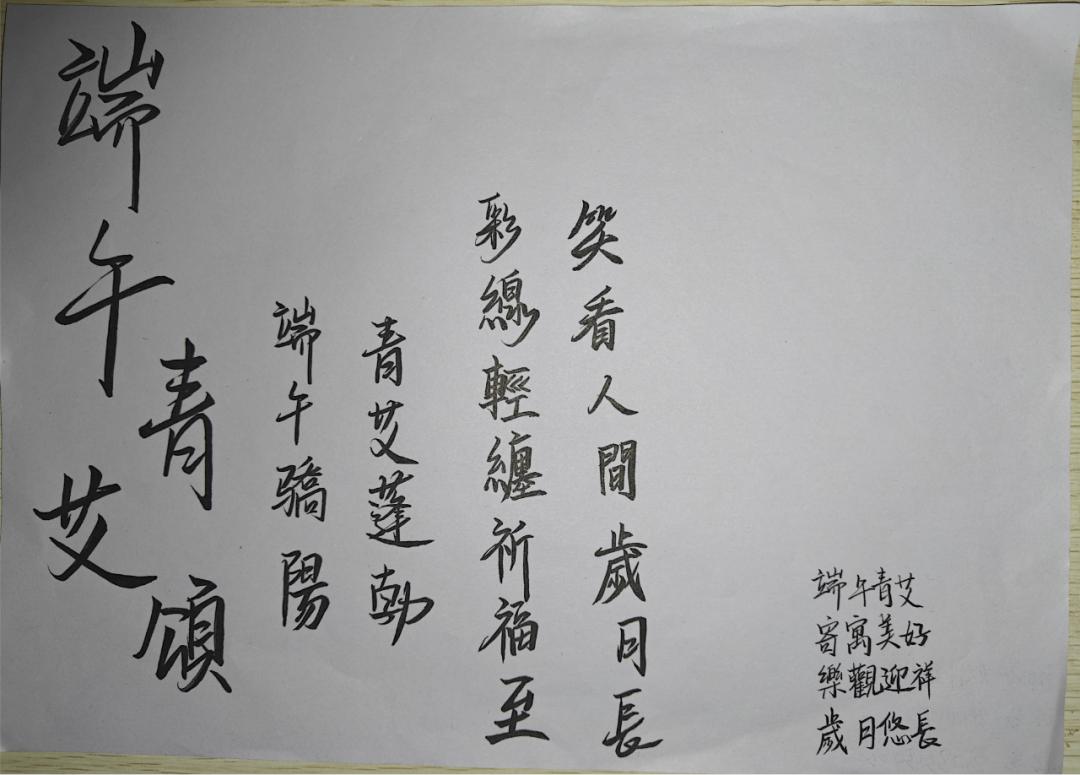 端午青艾頌
端午驕陽
青艾蓬勃
彩線輕纏祈福至
笑看人間歲月長
端午青艾
寄寓美好
樂觀迎祥
歲月悠長